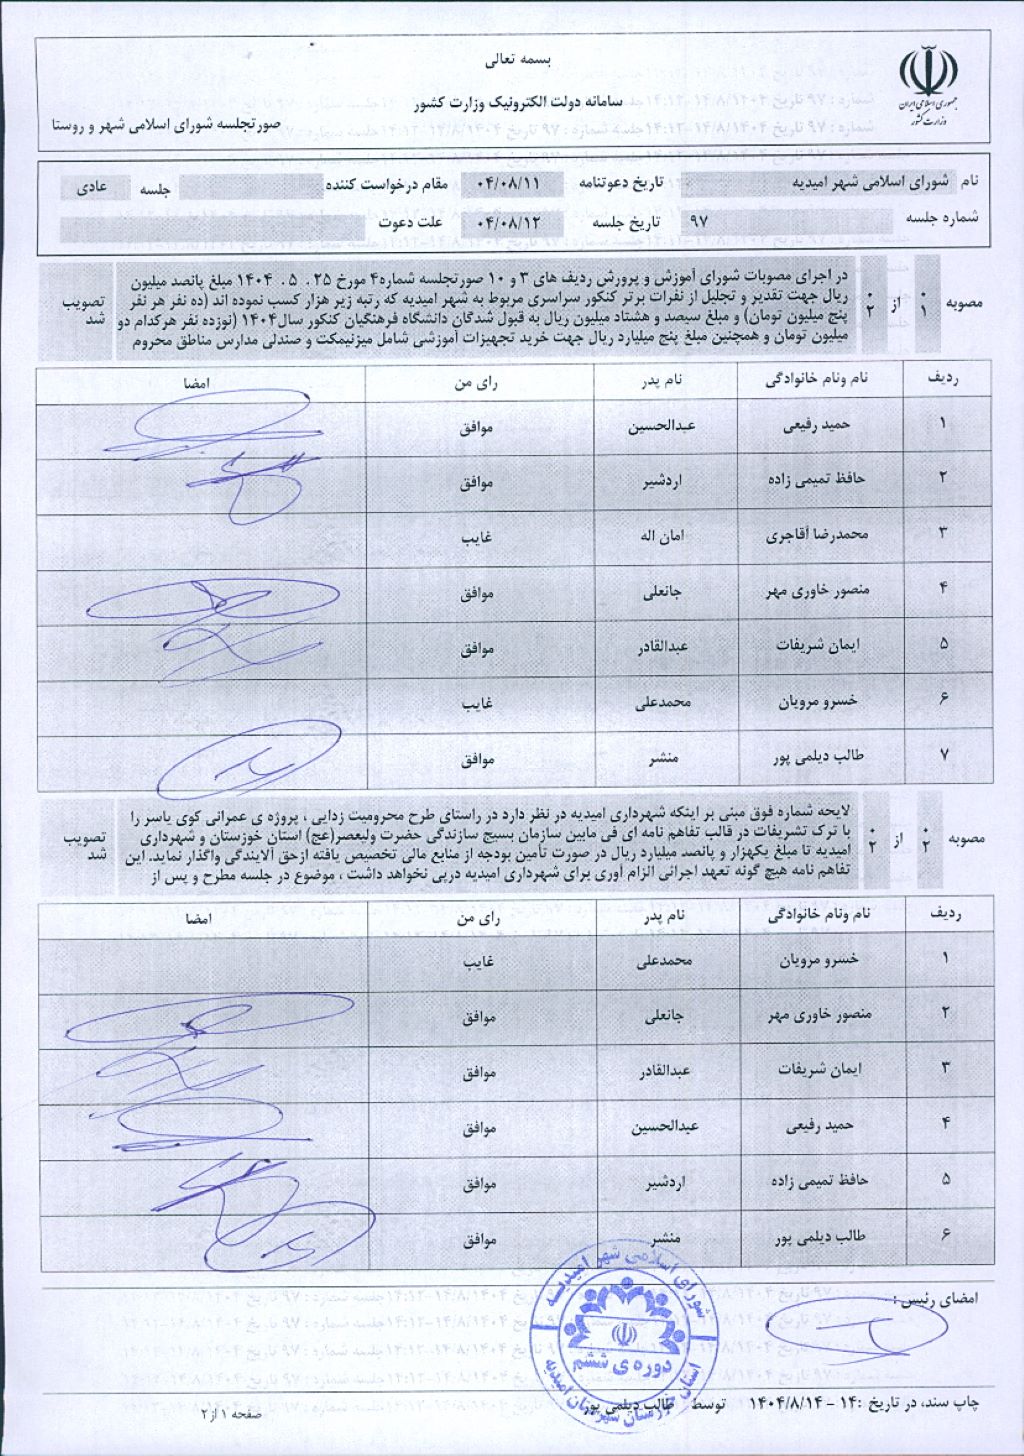 بسمه تعالی
سامانه دولت الکترونیک وزارت کشور
صورتجلسه شورای اسلامی شهر و روستا
جمهوری اسلامی ایران
وزارت کشور
نام شورای اسلامی شهر امیدیه تاریخ دعوتنامه ۰۴/۰۸/۱۱ مقام درخواست کننده جلسه عادی
شماره جلسه ۹۷ تاریخ جلسه ۰۴/۰۸/۱۲ علت دعوت
مصوبه ۰۱ از ۰۲
در اجرای مصوبات شورای آموزش و پرورش ردیف های ۳ و ۱۰ صورتجلسه شماره۴ مورخ ۲۵ . ۵ . ۱۴۰۴ مبلغ پانصد میلیون
ریال جهت تقدیر و تجلیل از نفرات برتر کنکور سراسری مربوط به شهر امیدیه که رتبه زیر هزار کسب نموده اند (ده نفر هر نفر
پنج میلیون تومان) و مبلغ سیصد و هشتاد میلیون ریال به قبول شدگان دانشگاه فرهنگیان کنکور سال۱۴۰۴ (نوزده نفر هرکدام دو
میلیون تومان و همچنین مبلغ پنج میلیارد ریال جهت خرید تجهیزات آموزشی شامل میزنیمکت و صندلی مدارس مناطق محروم
تصویب شد
ردیف نام ونام خانوادگی نام پدر رای من امضا
۱ حمید رفیعی عبدالحسین موافق
۲ حافظ تمیمی زاده اردشیر موافق
۳ محمدرضا آقاجری امان اله غایب
۴ منصور خاوری مهر جانعلی موافق
۵ ایمان شریفات عبدالقادر موافق
۶ خسرو مرویان محمدعلی غایب
۷ طالب دیلمی پور منشر موافق
مصوبه ۰۲ از ۰۲
لایحه شماره فوق مبنی بر اینکه شهرداری امیدیه در نظر دارد در راستای طرح محرومیت زدایی ، پروژه ی عمرانی کوی یاسر را
با ترک تشریفات در قالب تفاهم نامه ای فی مابین سازمان بسیج سازندگی حضرت ولیعصر(عج) استان خوزستان و شهرداری
امیدیه تا مبلغ یکهزار و پانصد میلیارد ریال در صورت تأمین بودجه از منابع مالی تخصیص یافته ازحق آلایندگی واگذار نماید. این
تفاهم نامه هیچ گونه تعهد اجرائی الزام آوری برای شهرداری امیدیه درپی نخواهد داشت ، موضوع در جلسه مطرح و پس از
تصویب شد
ردیف نام ونام خانوادگی نام پدر رای من امضا
۱ خسرو مرویان محمدعلی غایب
۲ منصور خاوری مهر جانعلی موافق
۳ ایمان شریفات عبدالقادر موافق
۴ حمید رفیعی عبدالحسین موافق
۵ حافظ تمیمی زاده اردشیر موافق
۶ طالب دیلمی پور منشر موافق
امضای رئیس :
شورای اسلامی شهر امیدیه
دوره ی ششم
استان خوزستان شهرستان امیدیه
چاپ سند، در تاریخ :۱۴ - ۱۴۰۴/۸/۱۴ توسط طالب دیلمی پور
صفحه ۱ از ۲